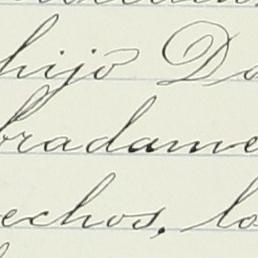 hijo D
bradame
echos, lo